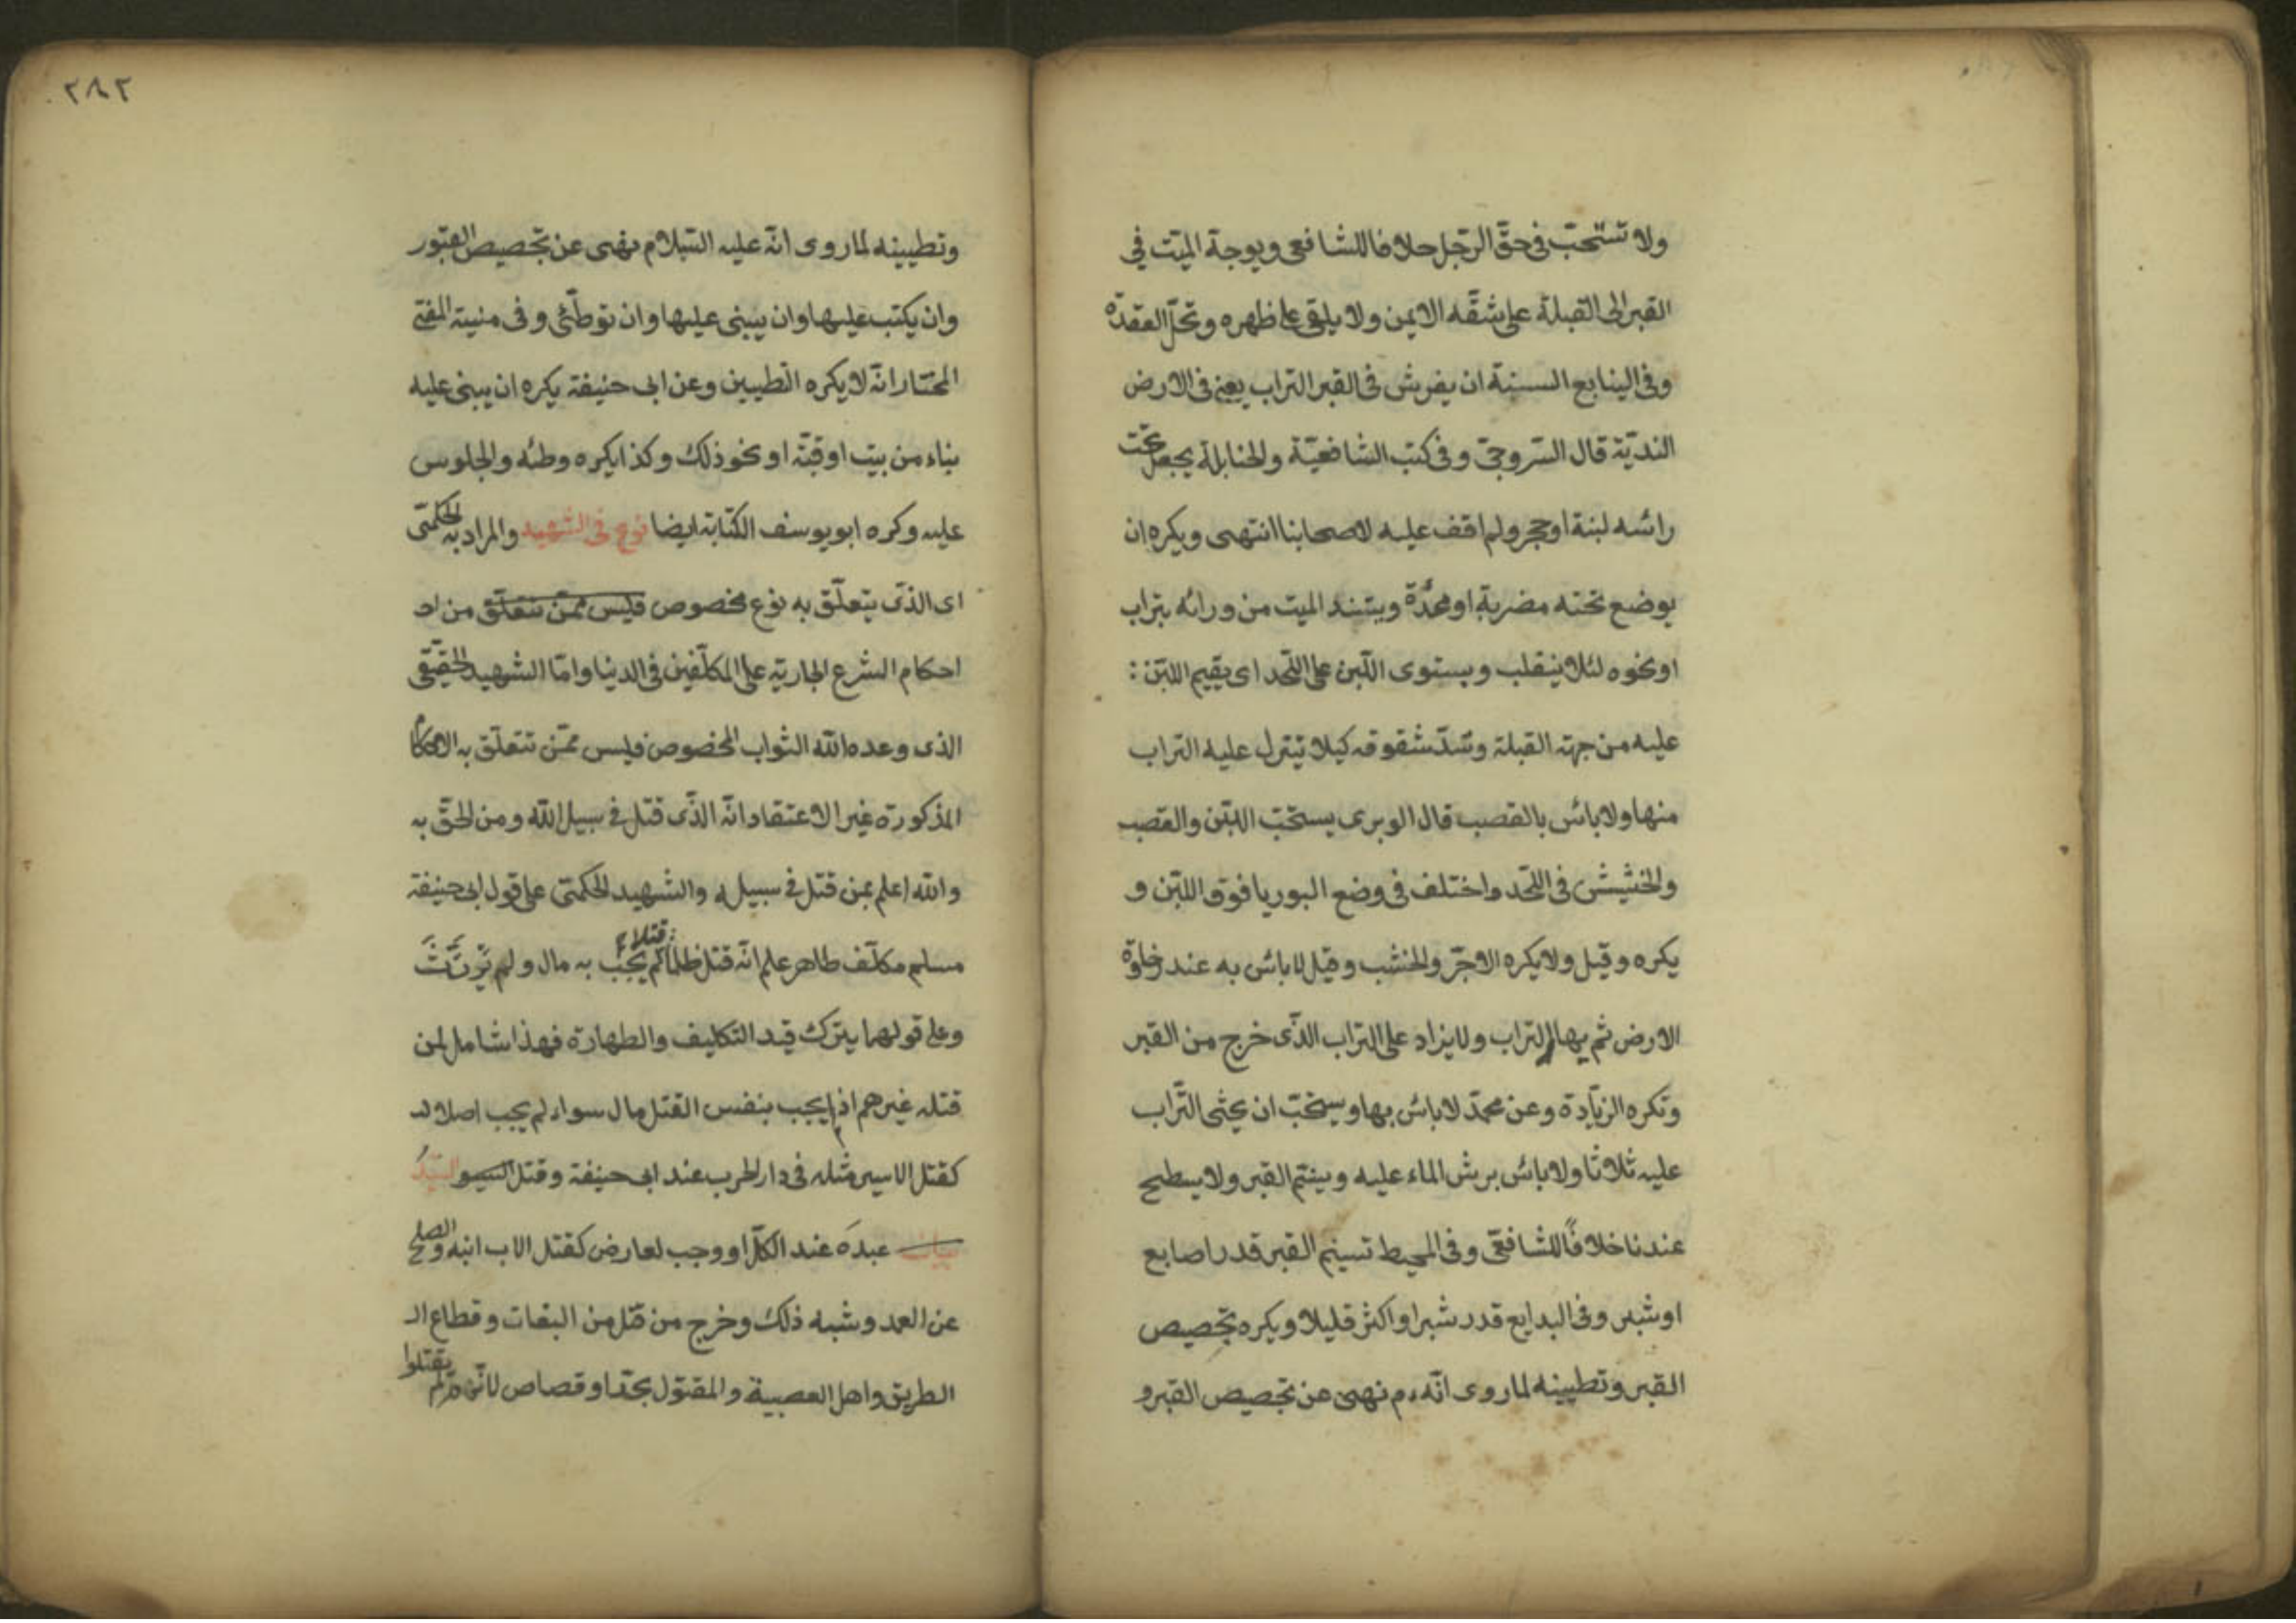 ولا تستحبّ فى حقّ الرّجل خلافا للشافعى ويوجه الميّت في
القبر الى القبلة على شقّه الايمن ولا يلقى على ظهره وتحلّ العقدة
وفى الينابع السنة ان يفرش فى القبر التراب يعنى فى الارض
النديّة قال السّروجىّ وفى كتب الشافعيّة والحنابلة يجعل تحت
رائسه لبنة اوحجر ولم اقف عليه لاصحابنا انتهى ويكره ان
يوضع تحته مضربة او مخدّة ويسند الميت من ورائه بتراب
اونحوه لئلا ينقلب ويستوى اللّبن على اللّحد اى يقيم اللبّن :
عليه من جهة القبلة وتسدّ شقوقه كيلا ينزل عليه التراب
منها ولا بائس بالقصب قال الوبرى يستحبّ اللبّن والقصب
والحشيش فى اللّحد واختلف فى وضع البوريا فوق اللبّن و
يكره وقيل ولا يكره الاجرّ والخشب وقيل لا بائس به عند رخاوة
الارض ثم يهال التراب ولا يزاد على التراب الذّى خرج من القبر
وتكره الزيّادة وعن محمدّ لا بائس بها ويستحبّ ان يحثى التّراب
عليه ثلاثا ولا بائس برش الماء عليه ويسنّم القبر ولا يسطح
عندنا خلافًا للشافعىّ وفى المحيط تسنيم القبر قدر اصابع
اوشبر وفى البدايع قدر شبرا واكثر قليلا ويكره تجصيص
القبر وتطيينه لما روى انّه ءم نهى عن تجصيص القبرو
٢٨٢
وتطيينه لما روى انّه عليه السّلام نهى عن تجصيص القبور
وان يكتب عليها وان يبنى عليها وان توطّئى وفى منية المفتى
المختار انّه لا يكره التطيين وعن ابى حنيفة يكره ان يبنى عليه
بناء من بيت اوقبّة اونحوذلك وكذا يكره وطئه والجلوس
عليه وكره ابو يوسف الكتابة ايضا نوع فى الشهيد والمراد به الحكمىّ
اى الذّى يتعلّق به نوع مخصوص فليس ممّن تتعلّق من
احكام الشرع الجارية على المكلّفين فى الدنيا وامّا الشهيد الحقيقى
الذى وعده الله الثواب المخصوص فليس ممّن تتعلّق به الاحكام
المذكورة غير الاعتقاد انّه الذّى قتل فى سبيل الله ومن الحقّ به
والله اعلم بمن قتل فى سبيله والشهيد الحكمىّ على قول ابى حنيفة
مسلم مكلّف طاهر علم انّه قتل ظلما قتلا لم يجب به مال ولم يرتثّ
وعلى قولهما يترك قيد التكليف والطهارة فهذا شامل لمن
قتله غيرهم اذ لم يجب بنفس القتل مال سواء لم يجب اصلا
كقتل الاسير مثله فى دار الحرب عند ابى حنيفة وقتل السيّد
عبدَه عند الكلّ او وجب لعارض كقتل الاب ابنه والصلح
عن العمد وشبه ذلك وخرج من قتل من البغات وقطاع الـ
الطريق واهل العصبية والمقتول بحدّ اوقصاص لانّهم لم يقتلوا